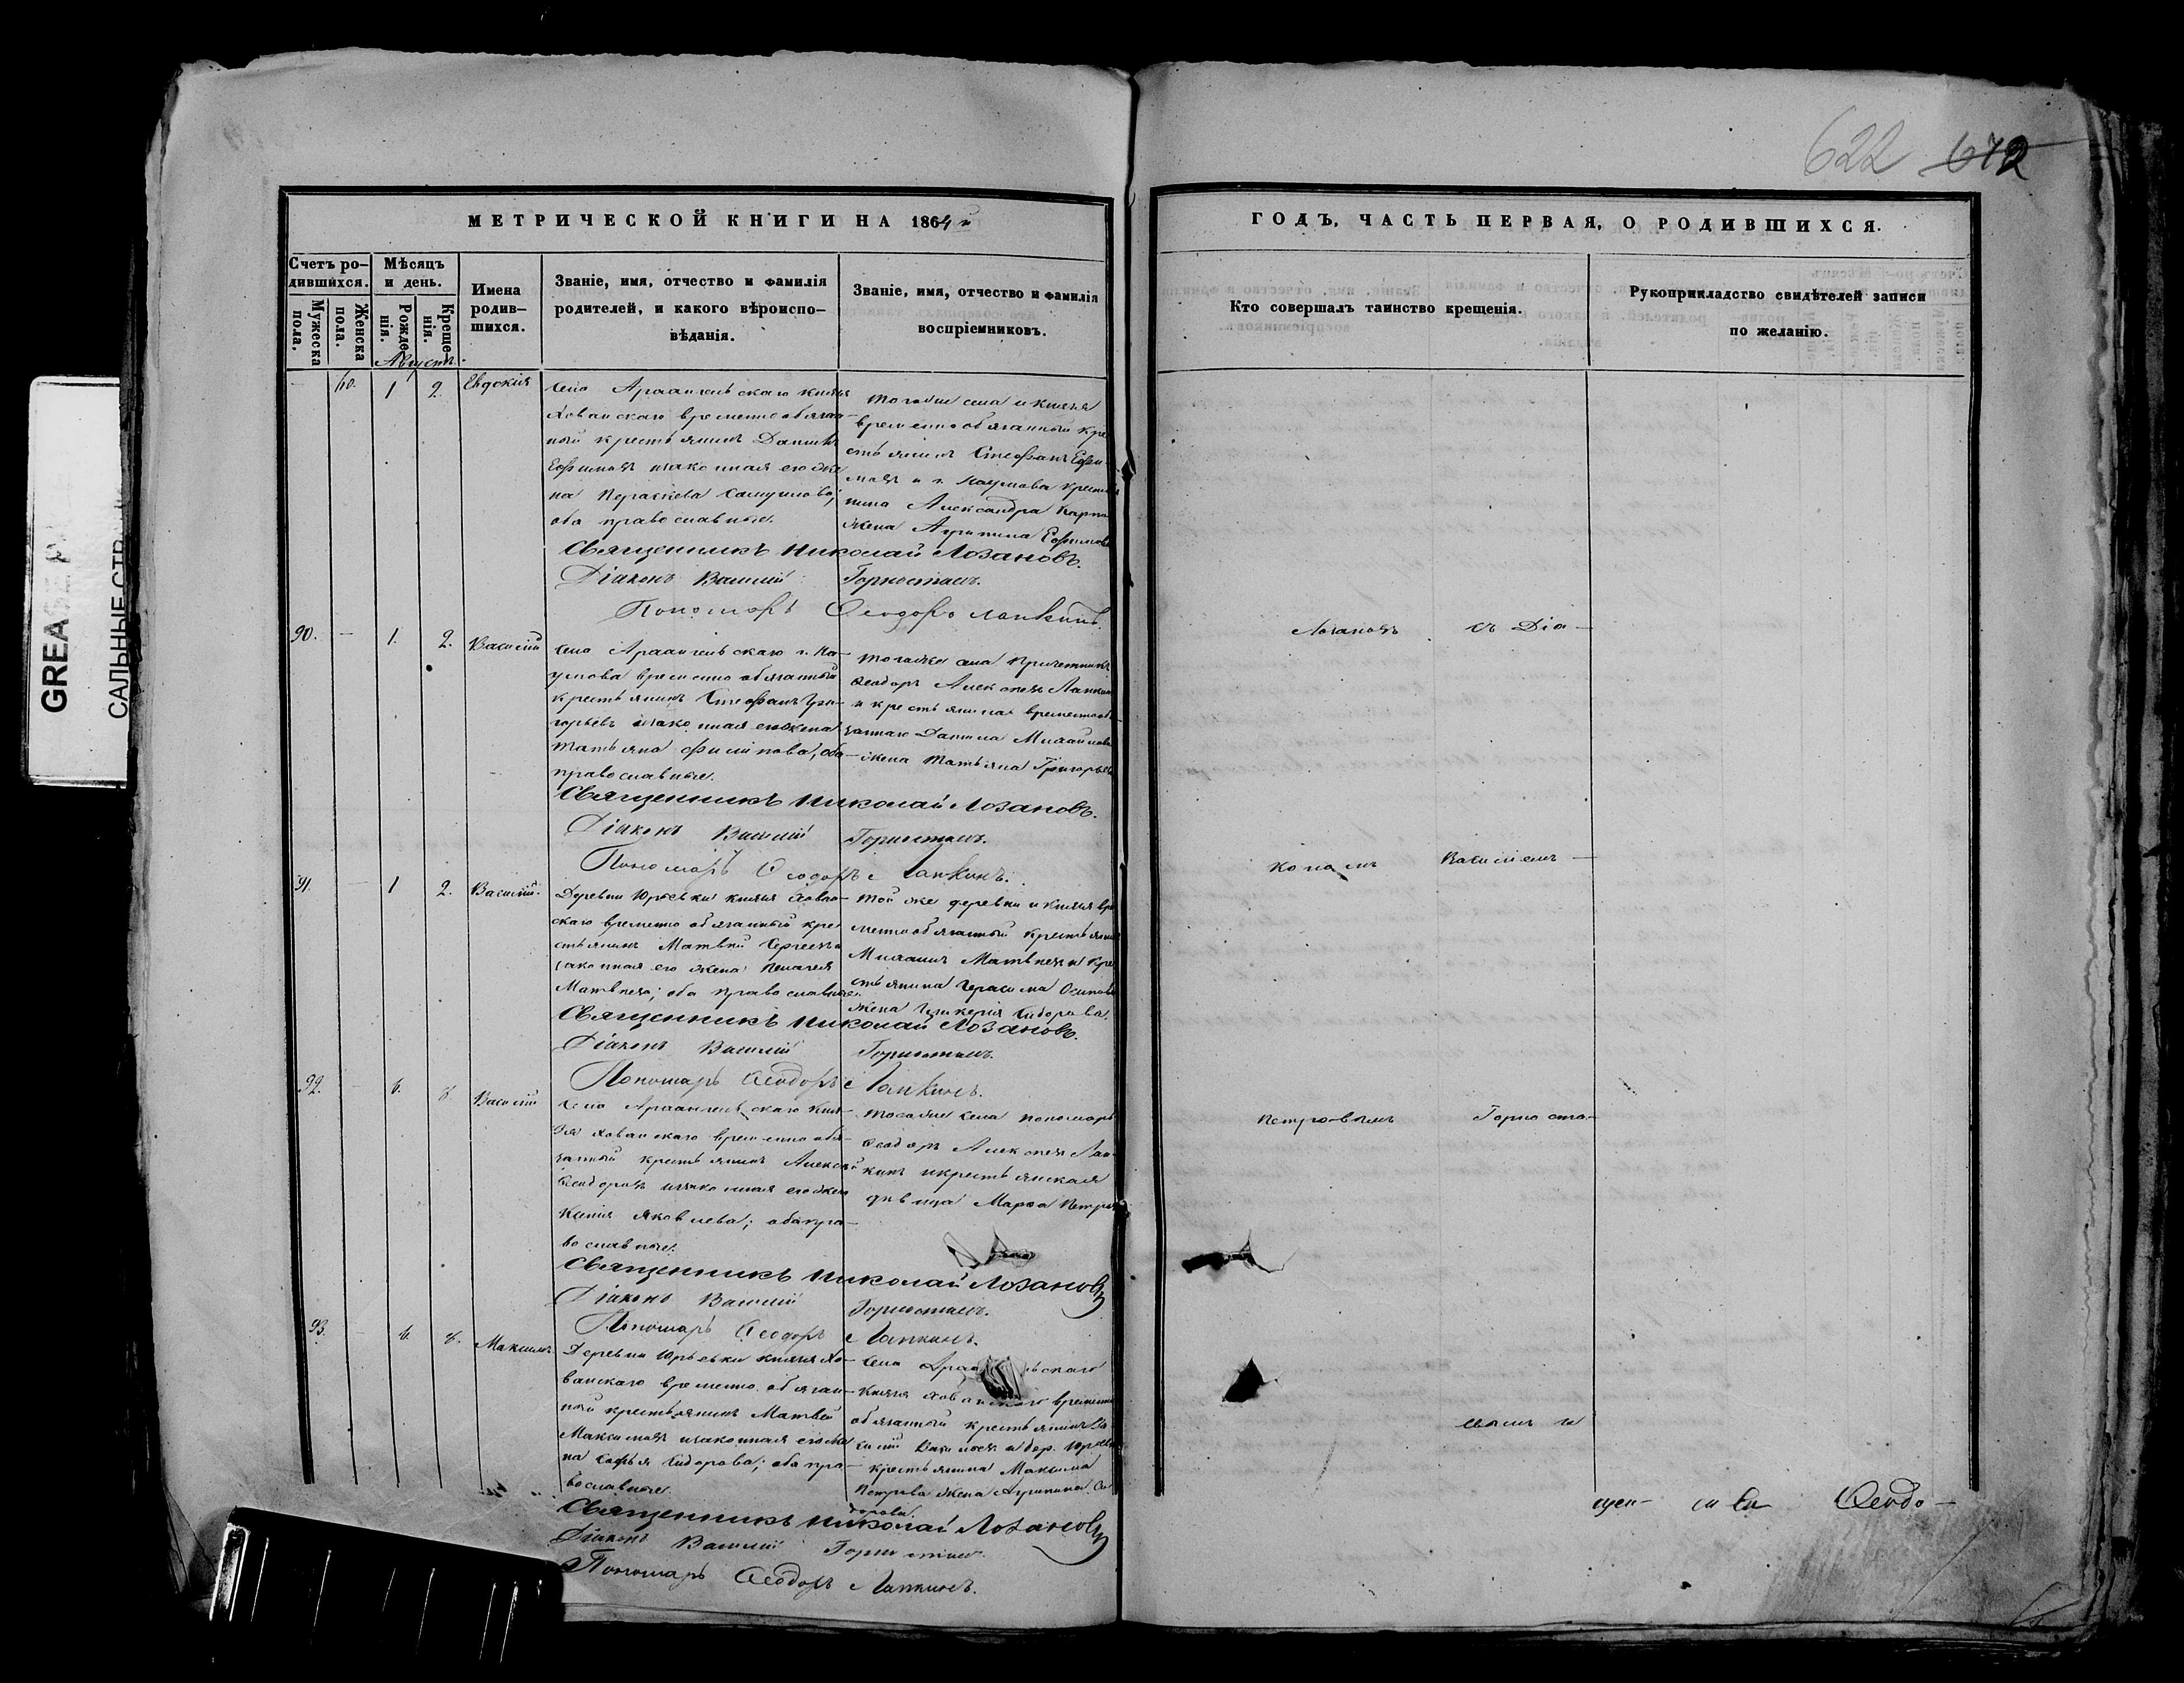 622 612
МЕТРИЧЕСКОЙ КНИГИ НА 1864й
ГОДЪ, ЧАСТЬ ПЕРВАЯ, О РОДИВШИХСЯ.
Счетъ ро-
дившихся.
Мужеска пола.
Женска пола.
Мѣсяцъ
и день.
Рожде-
нія.
Креще-
нія.
Имена
родив-
шихся.
Званіе, имя, отчество и фамилія
родителей, и какого вѣроиспо-
вѣданія.
Званіе, имя, отчество и фамилія
воспріемниковъ.
Кто совершалъ таинство крещенія.
Рукоприкладство свидѣтелей записи
по желанію.
Августъ.
60. 1 2. Евдокія
Села Архангельскаго князя
Хованскаго временнообязан-
ный крестьянинъ Даніилъ
Ефимовъ и законная его же-
на Параскева Самуилова;
оба православные.
Тогоже села и князя
временнообязанный кре-
стьянинъ Стефанъ Ефи-
мовъ и г. Наумова крестья-
нина Александра Карпова
жена Агрипина Ефимова
Священникъ Николай Лозановъ.
Діаконъ Василій Горностаевъ.
Пономарь Ѳеодоръ Лапкинъ.
90. — 1. 2. Василій
Села Архангельскаго г. На-
умова временно обязанный
крестьянинъ Стефанъ Гри-
горьевъ и законная его жена
Татьяна Филипова, оба
православные.
Тогоже села причетникъ
Ѳеодоръ Алексѣевъ Лапкинъ
и крестьянина временнооб-
заннаго Данила Михайлова
жена Татьяна Григорьева
Священникъ Николай Лозановъ.
Діаконъ Василій Горностаевъ.
Пономарь Ѳеодоръ Лапкинъ.
91. 1 2. Василій.
Деревни Юрьевки князя Хован-
скаго временно обязанный кре-
стьянинъ Матвѣй Сергѣевъ и
законная его жена Пелагея
Матвѣева; оба православные.
Той же деревни и князя вре-
меннообязанный крестьянинъ
Михаилъ Матвѣевъ и кре-
стьянина Герасима Осипова
жена Гликерія Сидорова.
Священникъ Николай Лозановъ.
Діаконъ Василій Горностаевъ.
Пономарь Ѳеодоръ Лапкинъ.
92. 6. 8 Василій
Села Архангельскаго кня-
зя Хованскаго временно обя-
занный крестьянинъ Алексѣй
Ѳеодоровъ и законная его жена
Ксенія Яковлева; оба пра-
вославные.
Тогоже села пономарь
Ѳеодоръ Алексѣевъ Лап-
кинъ и крестьянская
дѣвица Марѳа Петрова
Священникъ Николай Лозановъ
Діаконъ Василій Горностаевъ.
Пономарь Ѳеодоръ Лапкинъ.
93. 6. 8. Максимъ.
Деревни Юрьевки князя Хо-
ванскаго временно обязан-
ный крестьянинъ Матвѣй
Максимовъ и законная его же-
на Софья Сидорова; оба пра-
вославные.
Села
князя Хованскаго временно
обязанный крестьянинъ Ва-
силій и дер. Юрьевки
крестьянина Максима
Петрова жена Агрипина Си-
дорова.
Священникъ Николай Лозановъ
Діаконъ Василій Горностаевъ.
Пономарь Ѳеодоръ Лапкинъ.
Лозановъ съ Діа-
кономъ Василіемъ
Петровымъ Горноста-
евымъ и
Ѳеодо-
GREASE
САЛЬНЫЕ